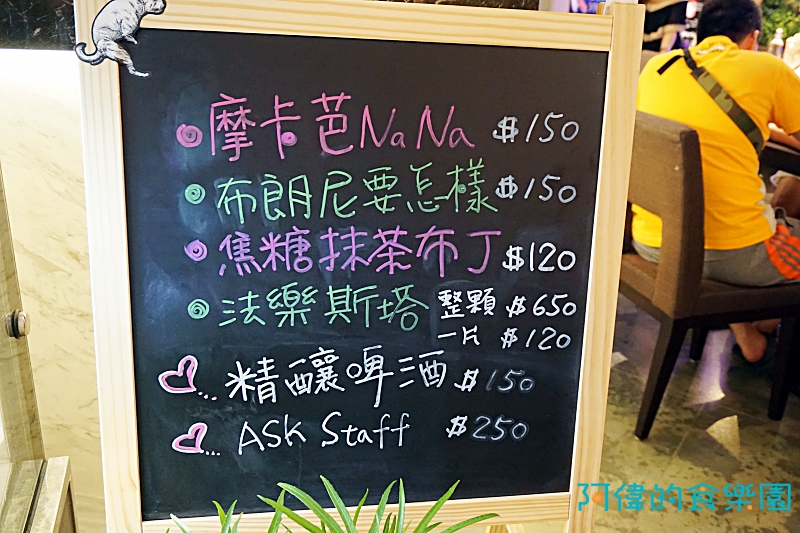 摩卡芭NaNa $150
布朗尼要怎樣 $150
焦糖抹茶布丁 $120
法樂斯塔 整顆 $650
一片 $120
精釀啤酒 $150
ASK Staff $250
阿偉的食樂園